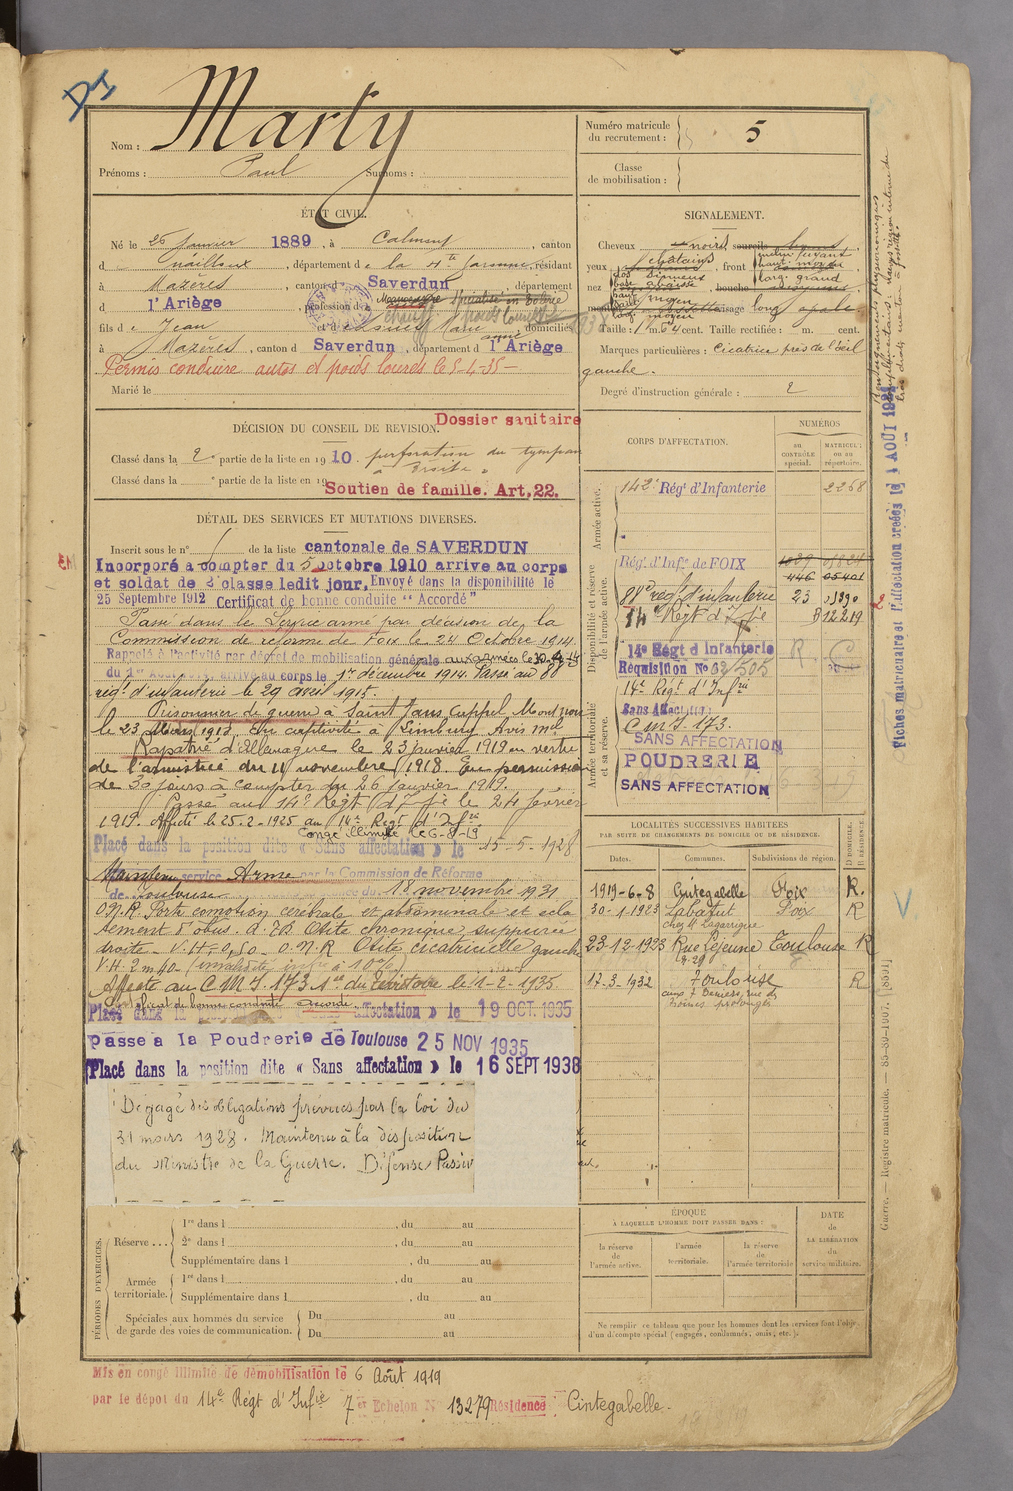 DI
Nom : Marty
Prénoms : Paul Surnoms :
Numéro matricule du recrutement : 5
Classe de mobilisation :
ÉTAT CIVIL.
Né le 26 Janvier 1889, à Calmont, canton
d nailloux, département de la Hte Garonne, résidant
à Mazères, canton d Saverdun, département
d l'Ariège, profession de
fils de Jean et de Marie domiciliés
à Mazères, canton d Saverdun, département d l'Ariège
Permis conduire autos et poids lourds le 5-4-35
Marié le
SIGNALEMENT.
Cheveux noirs sourcils
yeux chatains, front
nez
visage long ovale
Taille : 1 m. 64 cent. Taille rectifiée : m. cent.
Marques particulières : Cicatrice près de l'œil
gauche.
Degré d'instruction générale : 2
DÉCISION DU CONSEIL DE REVISION.
Dossier sanitaire
Classé dans la 2e partie de la liste en 1910. perforation du tympan
droite
Classé dans la e partie de la liste en 19
Soutien de famille. Art. 22.
DÉTAIL DES SERVICES ET MUTATIONS DIVERSES.
Inscrit sous le n° de la liste cantonale de SAVERDUN
Incorporé à compter du 5 octobre 1910 arrive au corps
et soldat de 2e classe ledit jour. Envoyé dans la disponibilité le
25 Septembre 1912 Certificat de bonne conduite "Accordé"
Passé dans le Service armé par décision de la
Commission de réforme de Foix le 24 Octobre 1914.
Rappelé à l'activité par décret de mobilisation générale aux armées le
du 1er arrivé au corps le 1er décembre 1914. Passé au 88
régt d'infanterie le 29 avril 1915.
Prisonnier de guerre à Saint Jans Cappel
le 23 1918. En captivité à Limburg Avis mel
Rapatrié d'Allemagne le 23 janvier 1919 en vertu
de l'armistice du 11 novembre 1918. En permission
de 30 jours à compter du 26 janvier 1919.
Passé au 14e Régt d'Infie le 24 février
1919. Affecté le 25-2-1925 au 14e Regt d'Infie
Congé illimité le 6-8-19
Placé dans la position dite « Sans affectation » le 15-5-1928
Maintenu service Armé par la Commission de Réforme
de Toulouse du 18 novembre 1931
droite. V.H. 0,50. O.N.R Otite cicatricielle gauche
V.H. 2m40 (invalidité infre à 10%)
Affecté au C M I 173 1er du territoire le 1-2-1935
Certificat de bonne conduite accordé.
Placé dans la position dite « Sans affectation » le 19 OCT. 1935
Passé à la Poudrerie de Toulouse 25 NOV 1935
Placé dans la position dite « Sans affectation » le 16 SEPT 1938
Dégagé des obligations prévues par la loi du
31 mars 1928. Maintenu à la disposition
du Ministre de la Guerre. Défense Passive
CORPS D'AFFECTATION.
NUMÉROS
au contrôle spécial.
matricule ou au répertoire.
Armée active.
142e Régt d'Infanterie 2268
Disponibilité et réserve de l'armée active.
Régt d'Infie de FOIX
446 05401
88e rég. d'infanterie 23
14e Régt d'Infie 12219
14e Régt d'Infanterie
Réquisition No
14e Régt d'Infrie
Armée territoriale et sa réserve.
Sans Affectation
C M I 173.
SANS AFFECTATION
POUDRERIE
SANS AFFECTATION
LOCALITÉS SUCCESSIVES HABITÉES
PAR SUITE DE CHANGEMENTS DE DOMICILE OU DE RÉSIDENCE.
Dates. Communes. Subdivisions de région. D. DOMICILE. R. RÉSIDENCE.
1919-6-8 Cintegabelle Foix R.
30-1-1923 Labatut Foix R
chez M Lagarrigue
23-12-1923 Rue Lejeune Toulouse R
17-3-1932 Toulouse R
ÉPOQUE
À LAQUELLE L'HOMME DOIT PASSER DANS :
la réserve de l'armée active.
l'armée territoriale.
la réserve de l'armée territoriale
DATE de LA LIBÉRATION du service militaire.
Ne remplir ce tableau que pour les hommes dont les services font l'objet
d'un décompte spécial (engagés, condamnés, omis, etc.).
PÉRIODES D'EXERCICES.
Réserve ... 1re dans l , du au
2e dans l , du au
Supplémentaire dans l , du au
Armée territoriale. 1re dans l , du au
Supplémentaire dans l , du au
Spéciales aux hommes du service Du au
de garde des voies de communication. Du au
Mis en congé illimité de démobilisation le 6 Août 1919
par le dépôt du 14e Régt d'Infie 7e Echelon N° 13279 Résidence : Cintegabelle.
Fiches matriculaire et d'affectation créées le 1 AOUT 192
Guerre. — Registre matricule. — 85-89-1907. [8801]